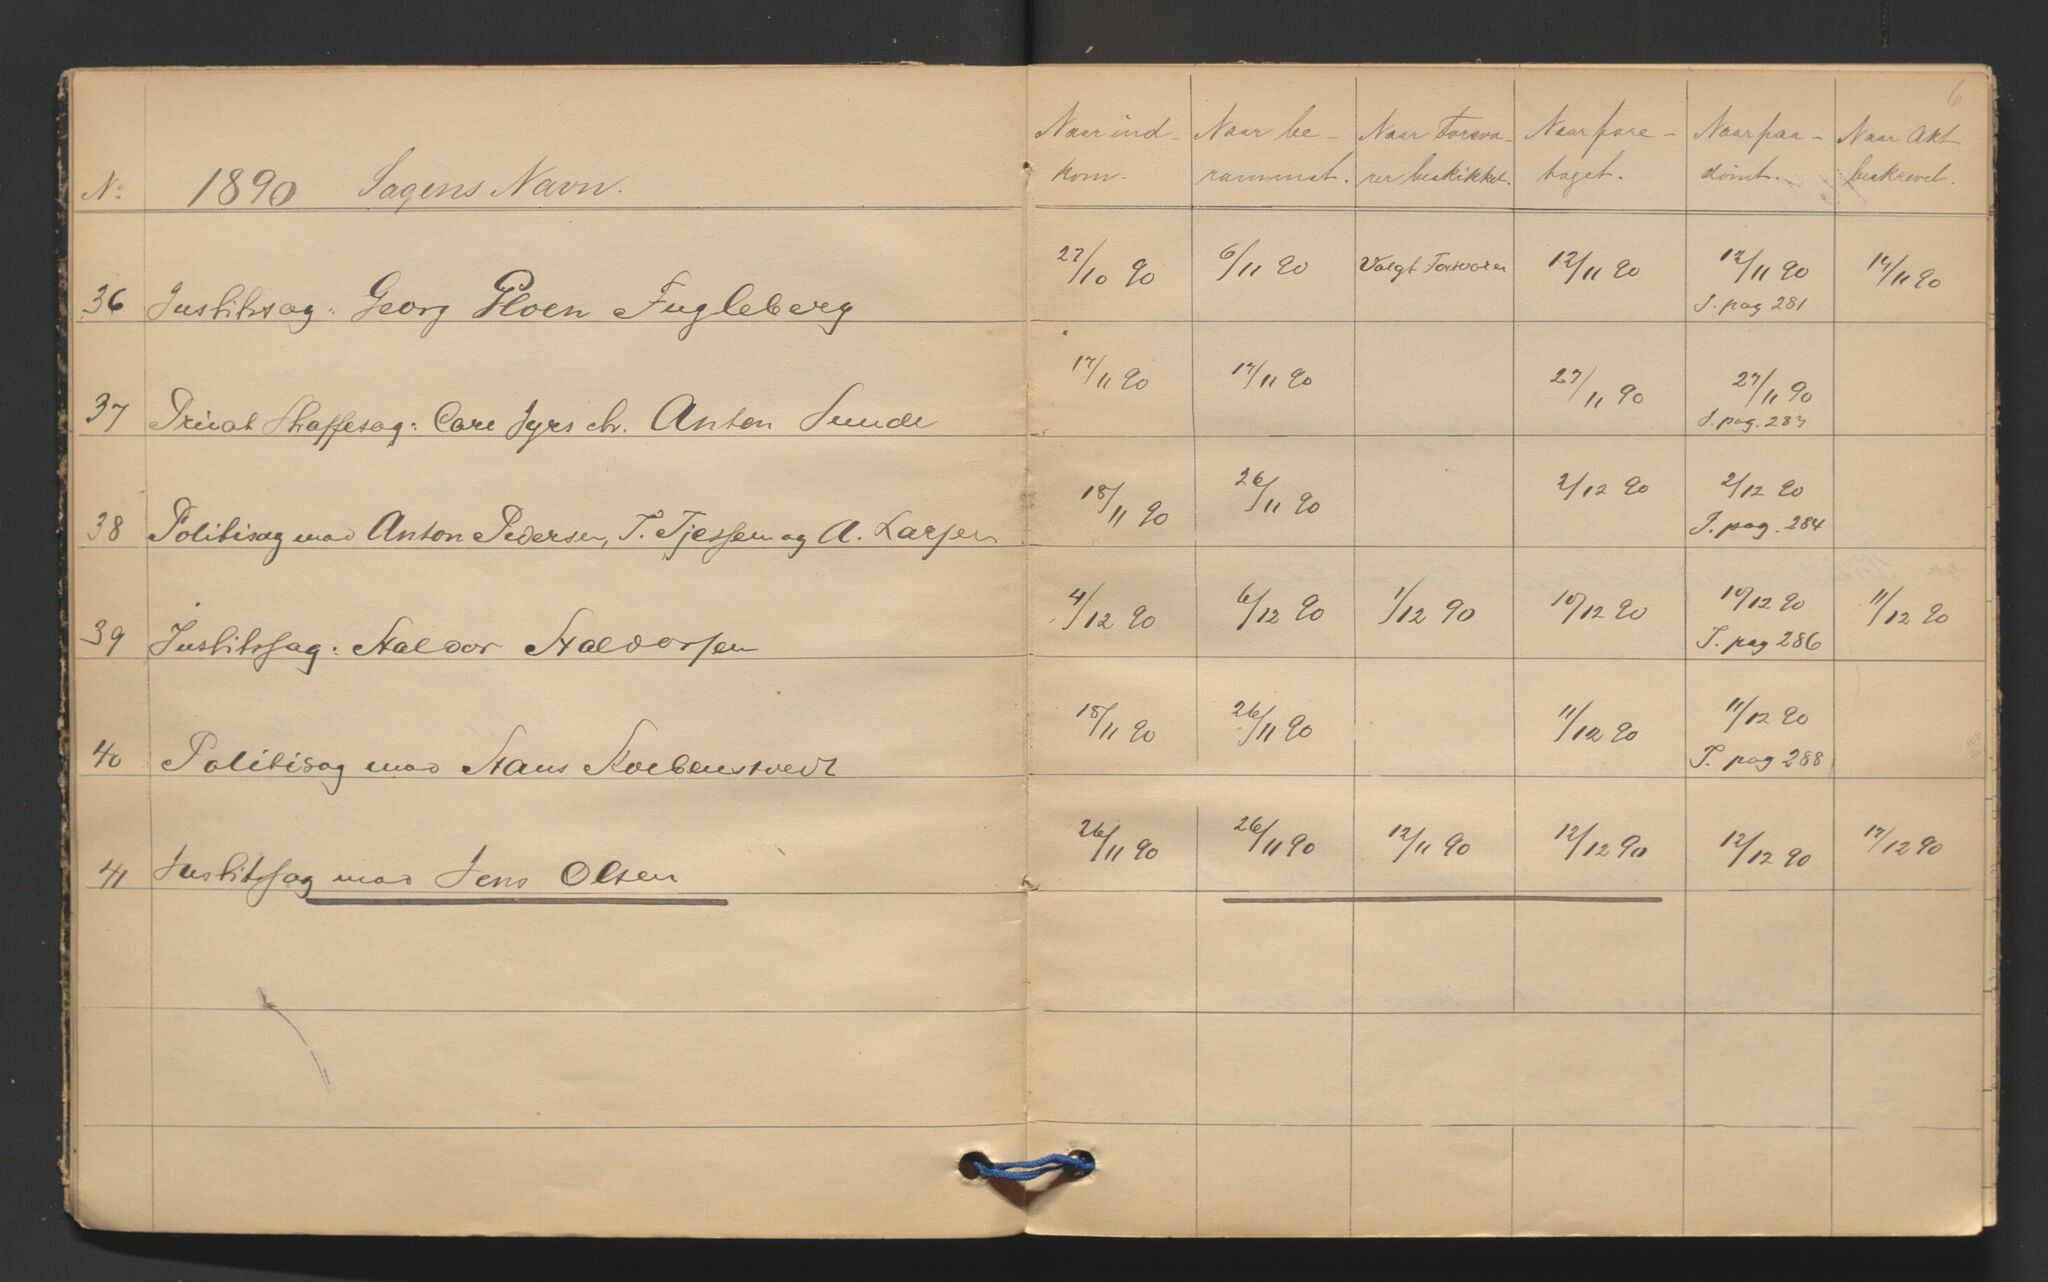 6
Nº 1890 Sagens Navn. Naar ind- Naar be- Naar Forsva- Naar fore- Naar paa- Naar Akt
kom. rammet. rer beskikket. taget. dömt. beskrevet.
36 Justitssag: Georg Ploen Fugleberg 27/10 90 6/11 90 Valgt Forsvarer 12/11 90 12/11 90 14/11 90
J. pag 281
37 Privat Straffesag: Carl Jyrs ctr. Anton Sunde 17/11 90 17/11 90 27/11 90 27/11 90
J. pag. 283
38 Politisag mod Anton Pedersen, T. Tjessem og A. Larsen 18/11 90 26/11 90 2/12 90 2/12 90
J. pag. 284
39 Justitssag: Haldor Haldorsen 4/12 90 6/12 90 1/12 90 10/12 90 10/12 90 11/12 90
J. pag 286
40 Politisag mod Hans 18/11 90 26/11 90 11/12 90 11/12 90
J. pag 288
41 Justitssag mod Jens Olsen 26/11 90 26/11 90 12/11 90 12/12 90 12/12 90 17/12 90